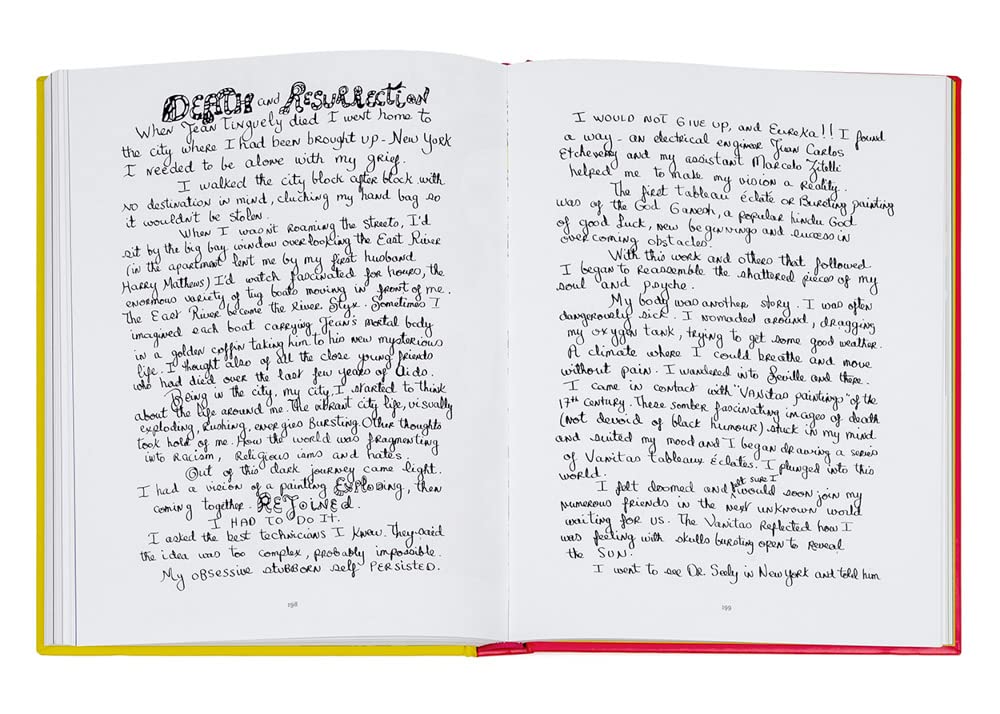 DEATH and RESURRECTION
When Jean Tinguely died I went home to
the city where I had been brought up - New York
I needed to be alone with my grief.
I walked the city block after block with
no destination in mind, cluching my hand bag so
it wouldn't be stolen.
When I wasn't roaming the streets, I'd
sit by the big bay window overlooking the East River
(in the apartment lent me by my first husband
Harry Mathews) I'd watch fascinated for hours, the
enormous variety of tug boats moving in front of me.
The East River became the River Styx. Sometimes I
imagined each boat carrying Jean's mortal body
in a golden coffin taking him to his new mysterious
life. I thought also of all the close young friends
who had died over the last few years of Aids.
Being in the city, my city, I started to think
about the life around me. The vibrant city life, visually
exploding, rushing, energies Bursting. Other thoughts
took hold of me. How the world was fragmenting
into racism, Religious isms and hates.
Out of this dark journey came light.
I had a vision of a painting Exploding, then
coming together. REJOINED.
I HAD TO DO IT.
I asked the best technicians I knew. They said
the idea was too complex, probably impossible.
My obsessive stubborn self PERSISTED.
198
I WOULD NOT GIVE UP, and Eureka!! I found
a way - an electrical engineer Juan Carlos
Etcheverry and my assistant Marcelo Zitelli
helped me to make my vision a reality.
The first tableau éclaté or Bursting painting
was of the God Ganesh, a popular hindu God
of good luck, new beginnings and success in
overcoming obstacles.
With this work and others that followed
I began to reassemble the shattered pieces of my
soul and psyche.
My body was another story. I was often
dangerously sick. I nomaded around, dragging
my oxygen tank, trying to get some good weather.
A climate where I could breathe and move
without pain. I wandered into Seville and there.
I came in contact with "Vanitas paintings" of the
17th century. These somber fascinating images of death
(not devoid of black humour) stuck in my mind
and suited my mood and I began drawing a series
of Vanitas tableaux Éclatés. I plunged into this
world.
I felt doomed and felt sure I would soon join my
numerous friends in the next unknown world
waiting for us. The Vanitas Reflected how I
was feeling with skulls bursting open to reveal
the SUN.
I went to see Dr. Seely in New York and told him
199